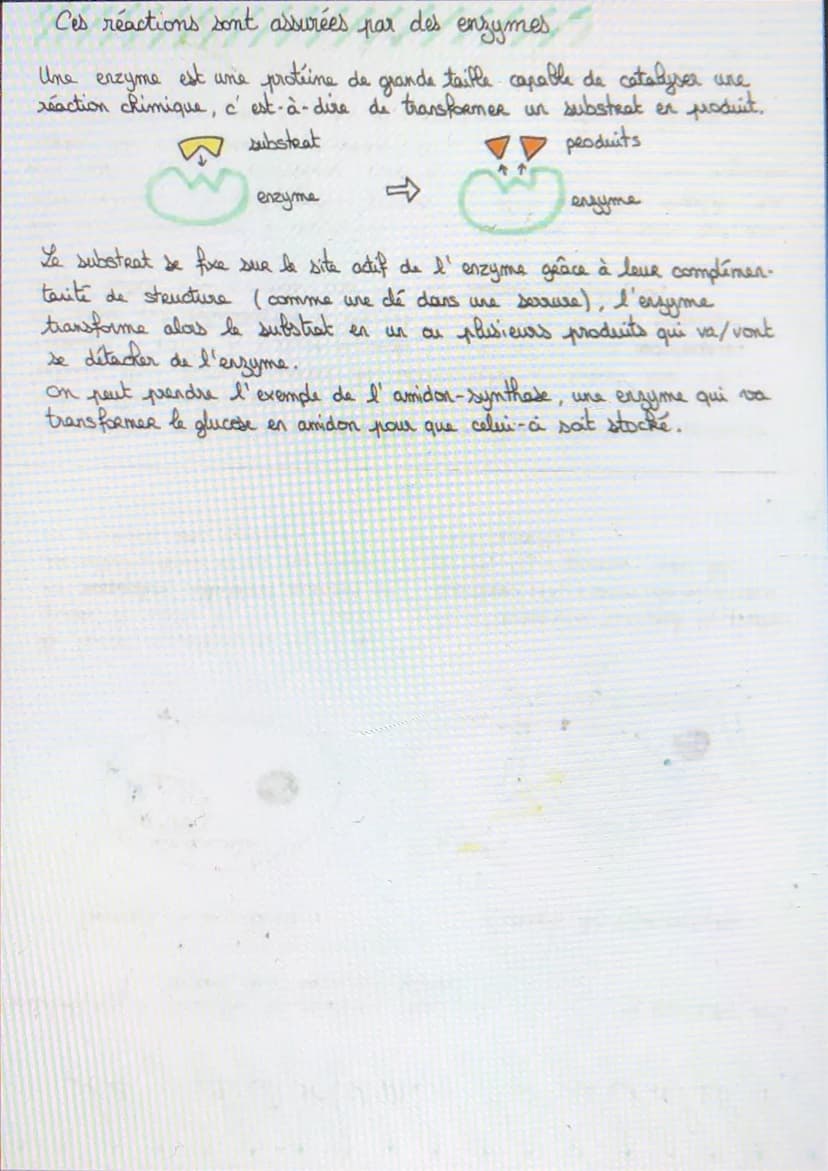 Ces réactions sont assurées par des enzymes
Une enzyme est une protéine de grande taille capable de catalyser une
réaction chimique, c'est-à-dire de transformer un substrat en produit.
substrat
produits
enzyme
⇨
enzyme
Le substrat se fixe sur le site actif de l'enzyme grâce à leur complémen-
tarité de structure (comme une clé dans une serrure), l'enzyme
transforme alors le substrat en un ou plusieurs produits qui va/vont
se détacher de l'enzyme.
On peut prendre l'exemple de l'amidon-synthase, une enzyme qui va
transformer le glucose en amidon pour que celui-ci soit stocké.